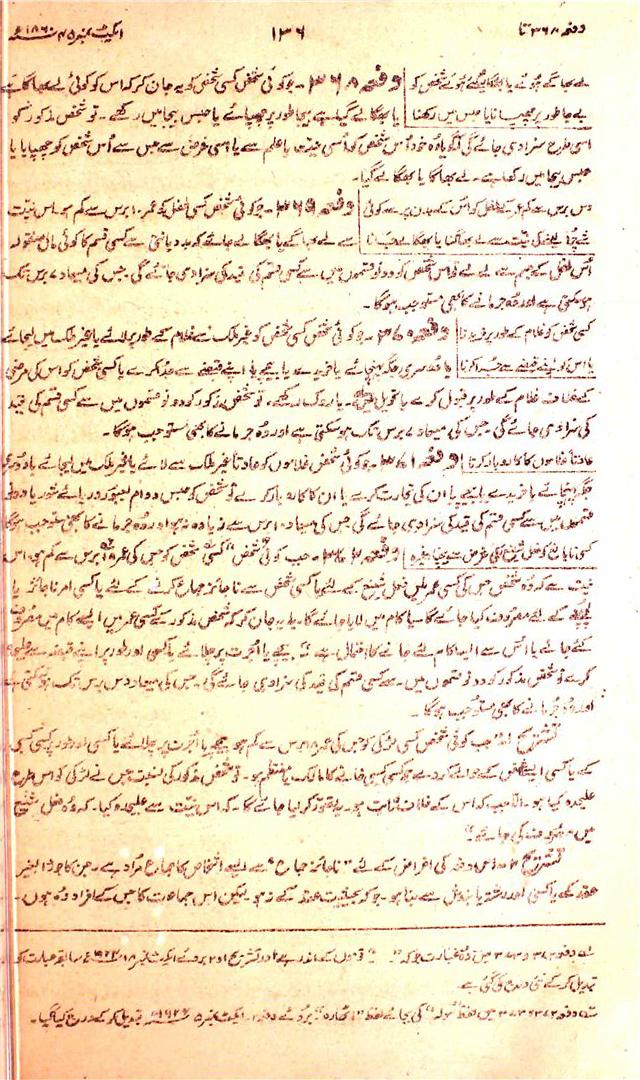 دفعہ ۳۶۸ تا ۱۳۶ ایکٹ نمبر ۴۵ ۱۸۶۰ء
لے بھاگے ہوئے یا بھگائے گئے ہوئے شخص کو دفعہ ۳۶۸ ۔ جو کوئی شخص کسی شخص کو یہ جان کر کہ اس کو کوئی لے بھاگا ہے
بے جا طور پر چھپانا یا حبس میں رکھنا یا بھگا لے گیا ہے بیجا طور پر چھپائے یا حبس بیجا میں رکھے ۔ تو شخص مذکور کو
اسی طرح سزا دی جائے گی کہ گویا وہ خود اس شخص کو اسی نیت یا علم سے یا اسی غرض سے جس سے اُس شخص کو چھپایا یا
حبس بیجا میں رکھا ہے ۔ لے بھاگا یا بھگا لے گیا ۔
دس برس سے کم عمر کے طفل کو اس کے بدن پر سے کوئی دفعہ ۳۶۹ ۔ جو کوئی شخص کسی طفل کو عمر ۱۰ برس سے کم ہو ۔ اس نیت
شے چرا لینے کی نیت سے لے بھاگنا یا بھگا لے جانا سے لے بھاگے یا بھگا لے جائے کہ بد دیانتی سے کسی قسم کا کوئی مال منقولہ
اُس طفل کے جسم سے لے لے تو اس شخص کو دونوں قسموں میں سے کسی قسم کی قید کی سزا دی جائے گی جس کی میعاد ۷ برس تک
ہو سکتی ہے اور وہ جرمانے کا بھی مستوجب ہوگا ۔
کسی شخص کو غلام کے طور پر خریدنا دفعہ ۳۷۰ ۔ جو کوئی شخص کسی شخص کو غیر ملک سے غلام کے طور پر لائے یا غیر ملک میں لیجائے
یا اس کو اپنے قبضے سے جدا کرنا یا دوسری جگہ پہنچائے یا خریدے یا بیچے یا اپنے قبضے سے جدا کرے یا کسی شخص کو اس کی مرضی
کے خلاف غلام کے طور پر قبول کرے یا تحویل میں لے ۔ یا روک رکھے ۔ تو شخص مذکور کو دونوں قسموں میں سے کسی قسم کی قید
کی سزا دی جائے گی ۔ جس کی میعاد ۷ برس تک ہو سکتی ہے اور وہ جرمانے کا بھی مستوجب ہوگا ۔
عادتاً غلاموں کا کاروبار کرنا دفعہ ۳۷۱ ۔ جو کوئی شخص غلاموں کو عادتاً غیر ملک سے لائے یا غیر ملک میں لیجائے یا دوسری
جگہ پہنچائے یا خریدے یا بیچے یا ان کی تجارت کرے یا ان کا کاروبار کرے تو شخص کو حبس دوام بعبور دریائے شور یا دونوں
قسموں میں سے کسی قسم کی قید کی سزا دی جائے گی جس کی میعاد ۱۰ برس سے زیادہ نہ ہو اور وہ جرمانے کا بھی مستوجب ہوگا
کسی نابالغ کو فعل شنیع کی غرض سے بیچنا وغیرہ دفعہ ۳۷۲ ۔ جب کوئی شخص کسی شخص کو جس کی عمر برس سے کم ہو ۔ اس
نیت سے کہ وہ شخص جس کی کسی عمر میں فعل شنیع کے لئے یا کسی شخص سے ناجائز جماع کرنے کے لئے یا کسی امر ناجائز یا
کے لئے مصروف کیا جائے گا ۔ یا کام میں لایا جائے گا ۔ یا یہ جان کر کہ شخص مذکور کے کسی عمر میں ایسے کام میں مصروف
کئے جانے یا اُس سے ایسا کام لئے جانے کا احتمال ہے بیچے یا اُجرت پر چلائے یا کسی اور طور پر اپنے قبضے سے علیحدہ
کرے تو شخص مذکور کو دونوں قسموں میں سے کسی قسم کی قید کی سزا دی جائے گی ۔ جس کی میعاد دس برس تک ہو سکتی ہے
اور وہ جرمانے کا بھی مستوجب ہوگا ۔
تشریح ۱ ۔ جب کوئی شخص کسی لڑکی کو جس کی عمر ۱۸ برس سے کم ہو بیچے یا اُجرت پر چلائے یا کسی اور طور پر کسی کسبی
کے یا کسی ایسے شخص کے حوالے کر دے جو کسی کسبی خانے کا مالک یا منتظم ہو ۔ تو شخص مذکور کی نسبت جس نے لڑکی کو اس طرح
علیحدہ کیا ہو ۔ تاوقتیکہ اس کے خلاف ثابت ہو ۔ یہ تصور کر لیا جائے گا کہ اس نیت سے علیحدہ کیا ۔ کہ وہ فعل شنیع
میں مصروف کی جائے ۔
تشریح ۲ ۔ اس دفعہ کی اغراض کے لئے "ناجائز جماع" سے ایسے اشخاص کا جماع مراد ہے ۔ جن کا جوڑا بغیر
عقد کے یا کسی اور رشتہ یا بندش سے بنا ہو ۔ جو کہ بحیثیت عقد کے نہ ہو لیکن اس جماعت کا جس کے افراد وہ ہوں ۔
دفعہ ۳۷۲ و ۳۷۳ میں وہ عبارت جو کہ " " قوسوں کے اندر ہے اور تشریح ۱ و ۲ بروئے ایکٹ نمبر ۱۸ ۱۹۲۴ء سابقہ عبارت کو
تبدیل کر کے نئی درج کی گئی ہے
دفعہ ۳۷۲ و ۳۷۳ میں لفظ "سولہ" کی بجائے لفظ "اٹھارہ" بروئے دفعہ ۲ ۔ ایکٹ نمبر ۵ ۱۹۲۴ء تبدیل کر کے درج کیا گیا ۔